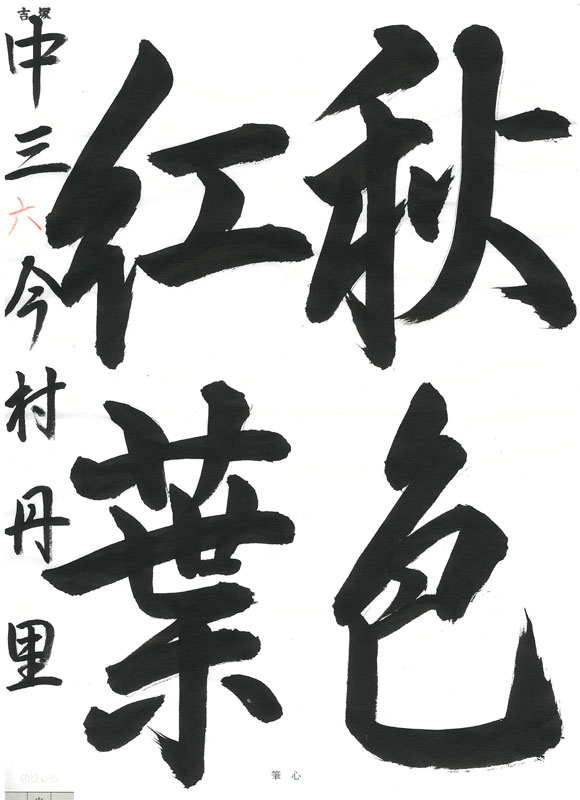 秋色
紅葉
吉塚
中三 六 今村丹里
心筆